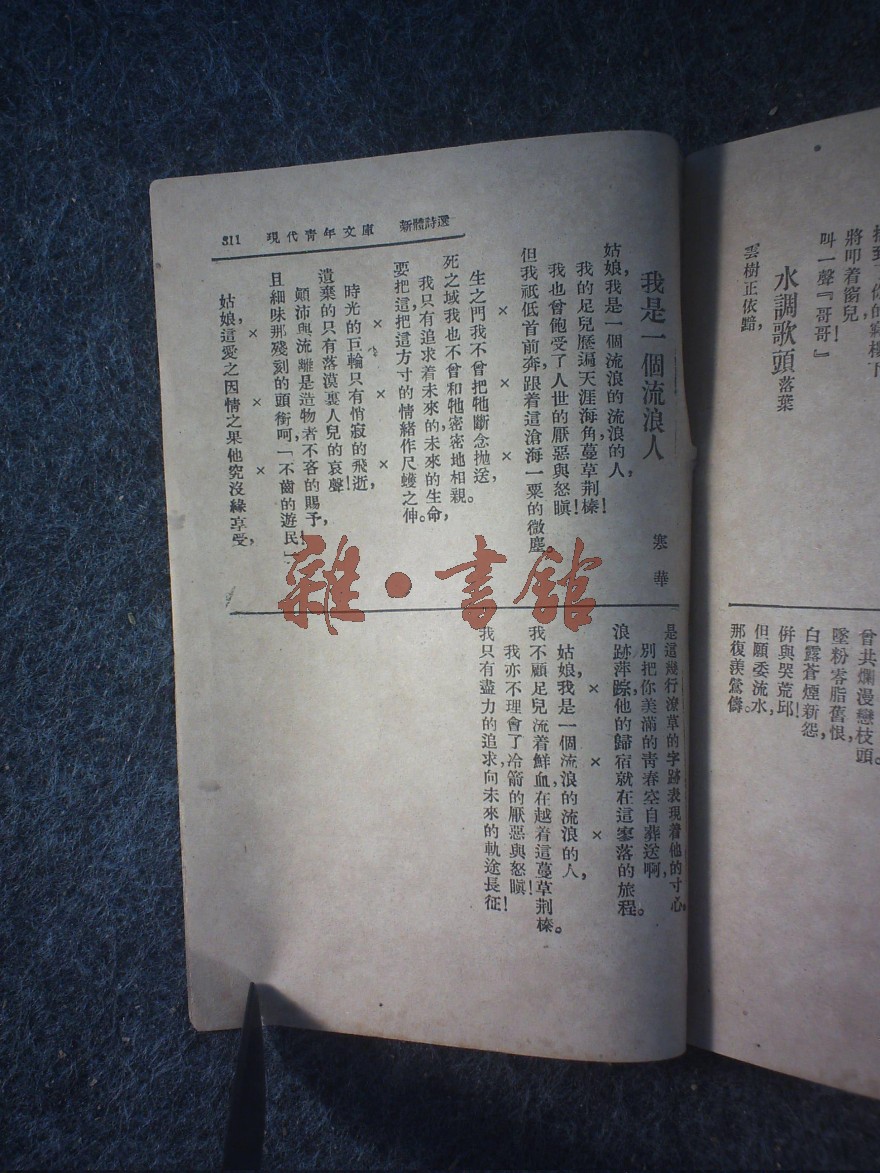 將叩着窗兒!
叫一聲『哥哥』
水調歌頭 落葉
雲樹正依黯,
曾共爛漫戀枝頭。
墜粉零脂舊恨,
白露蒼煙新怨,
併與哭荒邱!
但願委流水,
那復羨鶯儔。
311 現代青年文庫 新體詩選
我是一個流浪人 寒華
姑娘,我是一個流浪的流浪的人,
我的足兒歷遍天涯海角,蔓草荆榛!
我也曾飽受了人世的厭惡與怒瞋!
但我祇低首前奔,跟着這滄海一粟的微塵。
× × ×
生之門我不曾把牠斷念抛送,
死之域我也不曾和牠密密地相親。
我只有追求着未來的,未來的生命,
要把這,把這方寸的情緒作尺蠖之伸。
× × ×
時光的巨輪只有悄寂的飛逝,
遺棄的只有落漠裏人兒的哀聲!
顚沛與流離是造物者不吝的賜予,
且細味那殘刻的頭銜呵,「不齒的遊民」!
× × ×
姑娘,這愛之因情之果他究沒緣享受,
是這幾行潦草的字跡表現着他的寸心,
別把你美滿的青春空自葬送啊,
浪跡萍踪,他的歸宿就在這寥落的旅程。
× × ×
姑娘,我是一個流浪的流浪的人,
我不顧足兒流着鮮血,在越着這蔓草荆榛。
我亦不理會了冷箭的厭惡與怒瞋!
我只有盡力的追求,向未來的軌途長征!
雜·書館